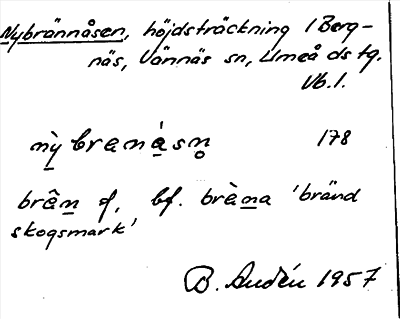 Nybrännåsen, höjdsträckning i Berg-
näs, Vännäs sn, Umeå ds tg.
Vb. l.
nỳ brenásn̥ 178
brân f, bf. brèna 'bränd
skogsmark'
B. Audén 1957